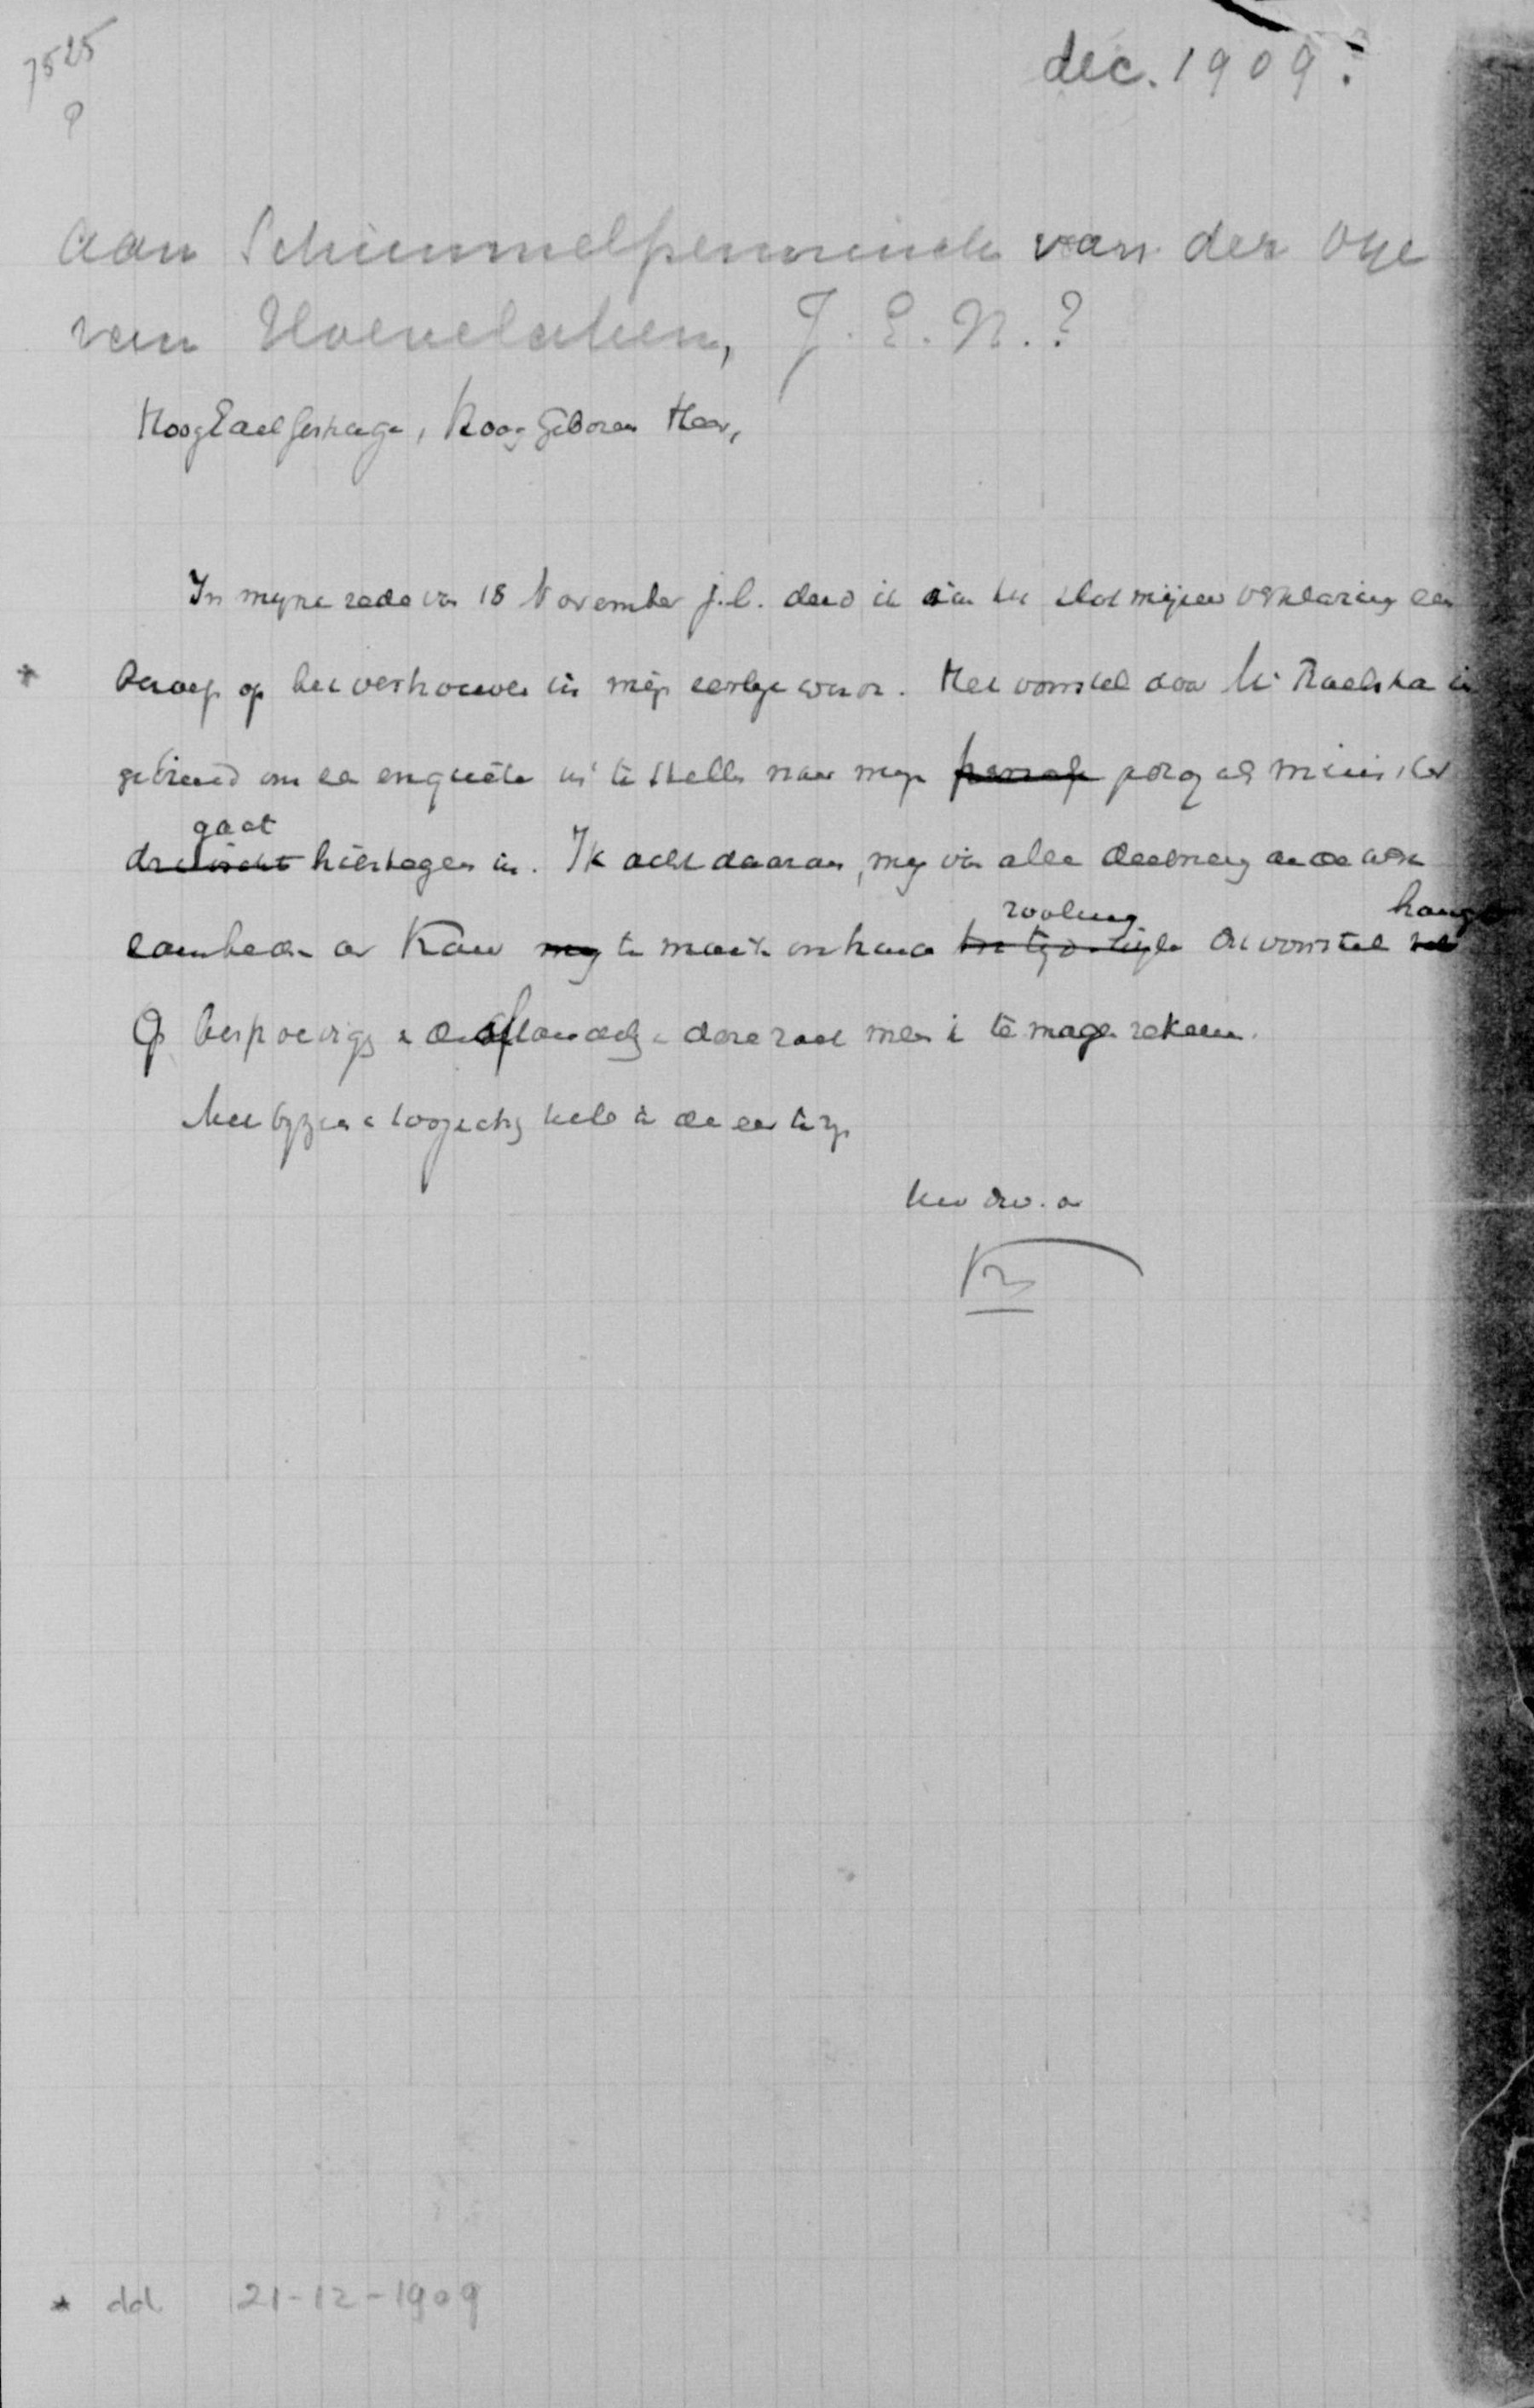 7525
dec. 1909?
aan Schimmelpenninck van der Oye
van Hoevelaken, J.E.N.?
HoogEdelGestrenge, Hoog Geboren Heer,
In mijne rede van 18 November j.l. deed ik aan het slot mijner verklaring een
* beroep op het vertrouwen in mijn eerlijk woord. Het voorstel door Mr Roelstra in
gediend om een enquête in te stellen naar mijn persoon als minister
gaat
druischt hiertegen in. Ik acht daarom, mij van alle deelneming aan de werk
zoolang hangt
zaamheden der Kamer mij te moeten onthouden dit voorstel
Op bespoediging der afhandeling dezer zaak meen ik te mogen rekenen.
Met bijzondere hoogachting heb ik de eer te zijn
Uw dw. dr
K
* dd 21-12-1909